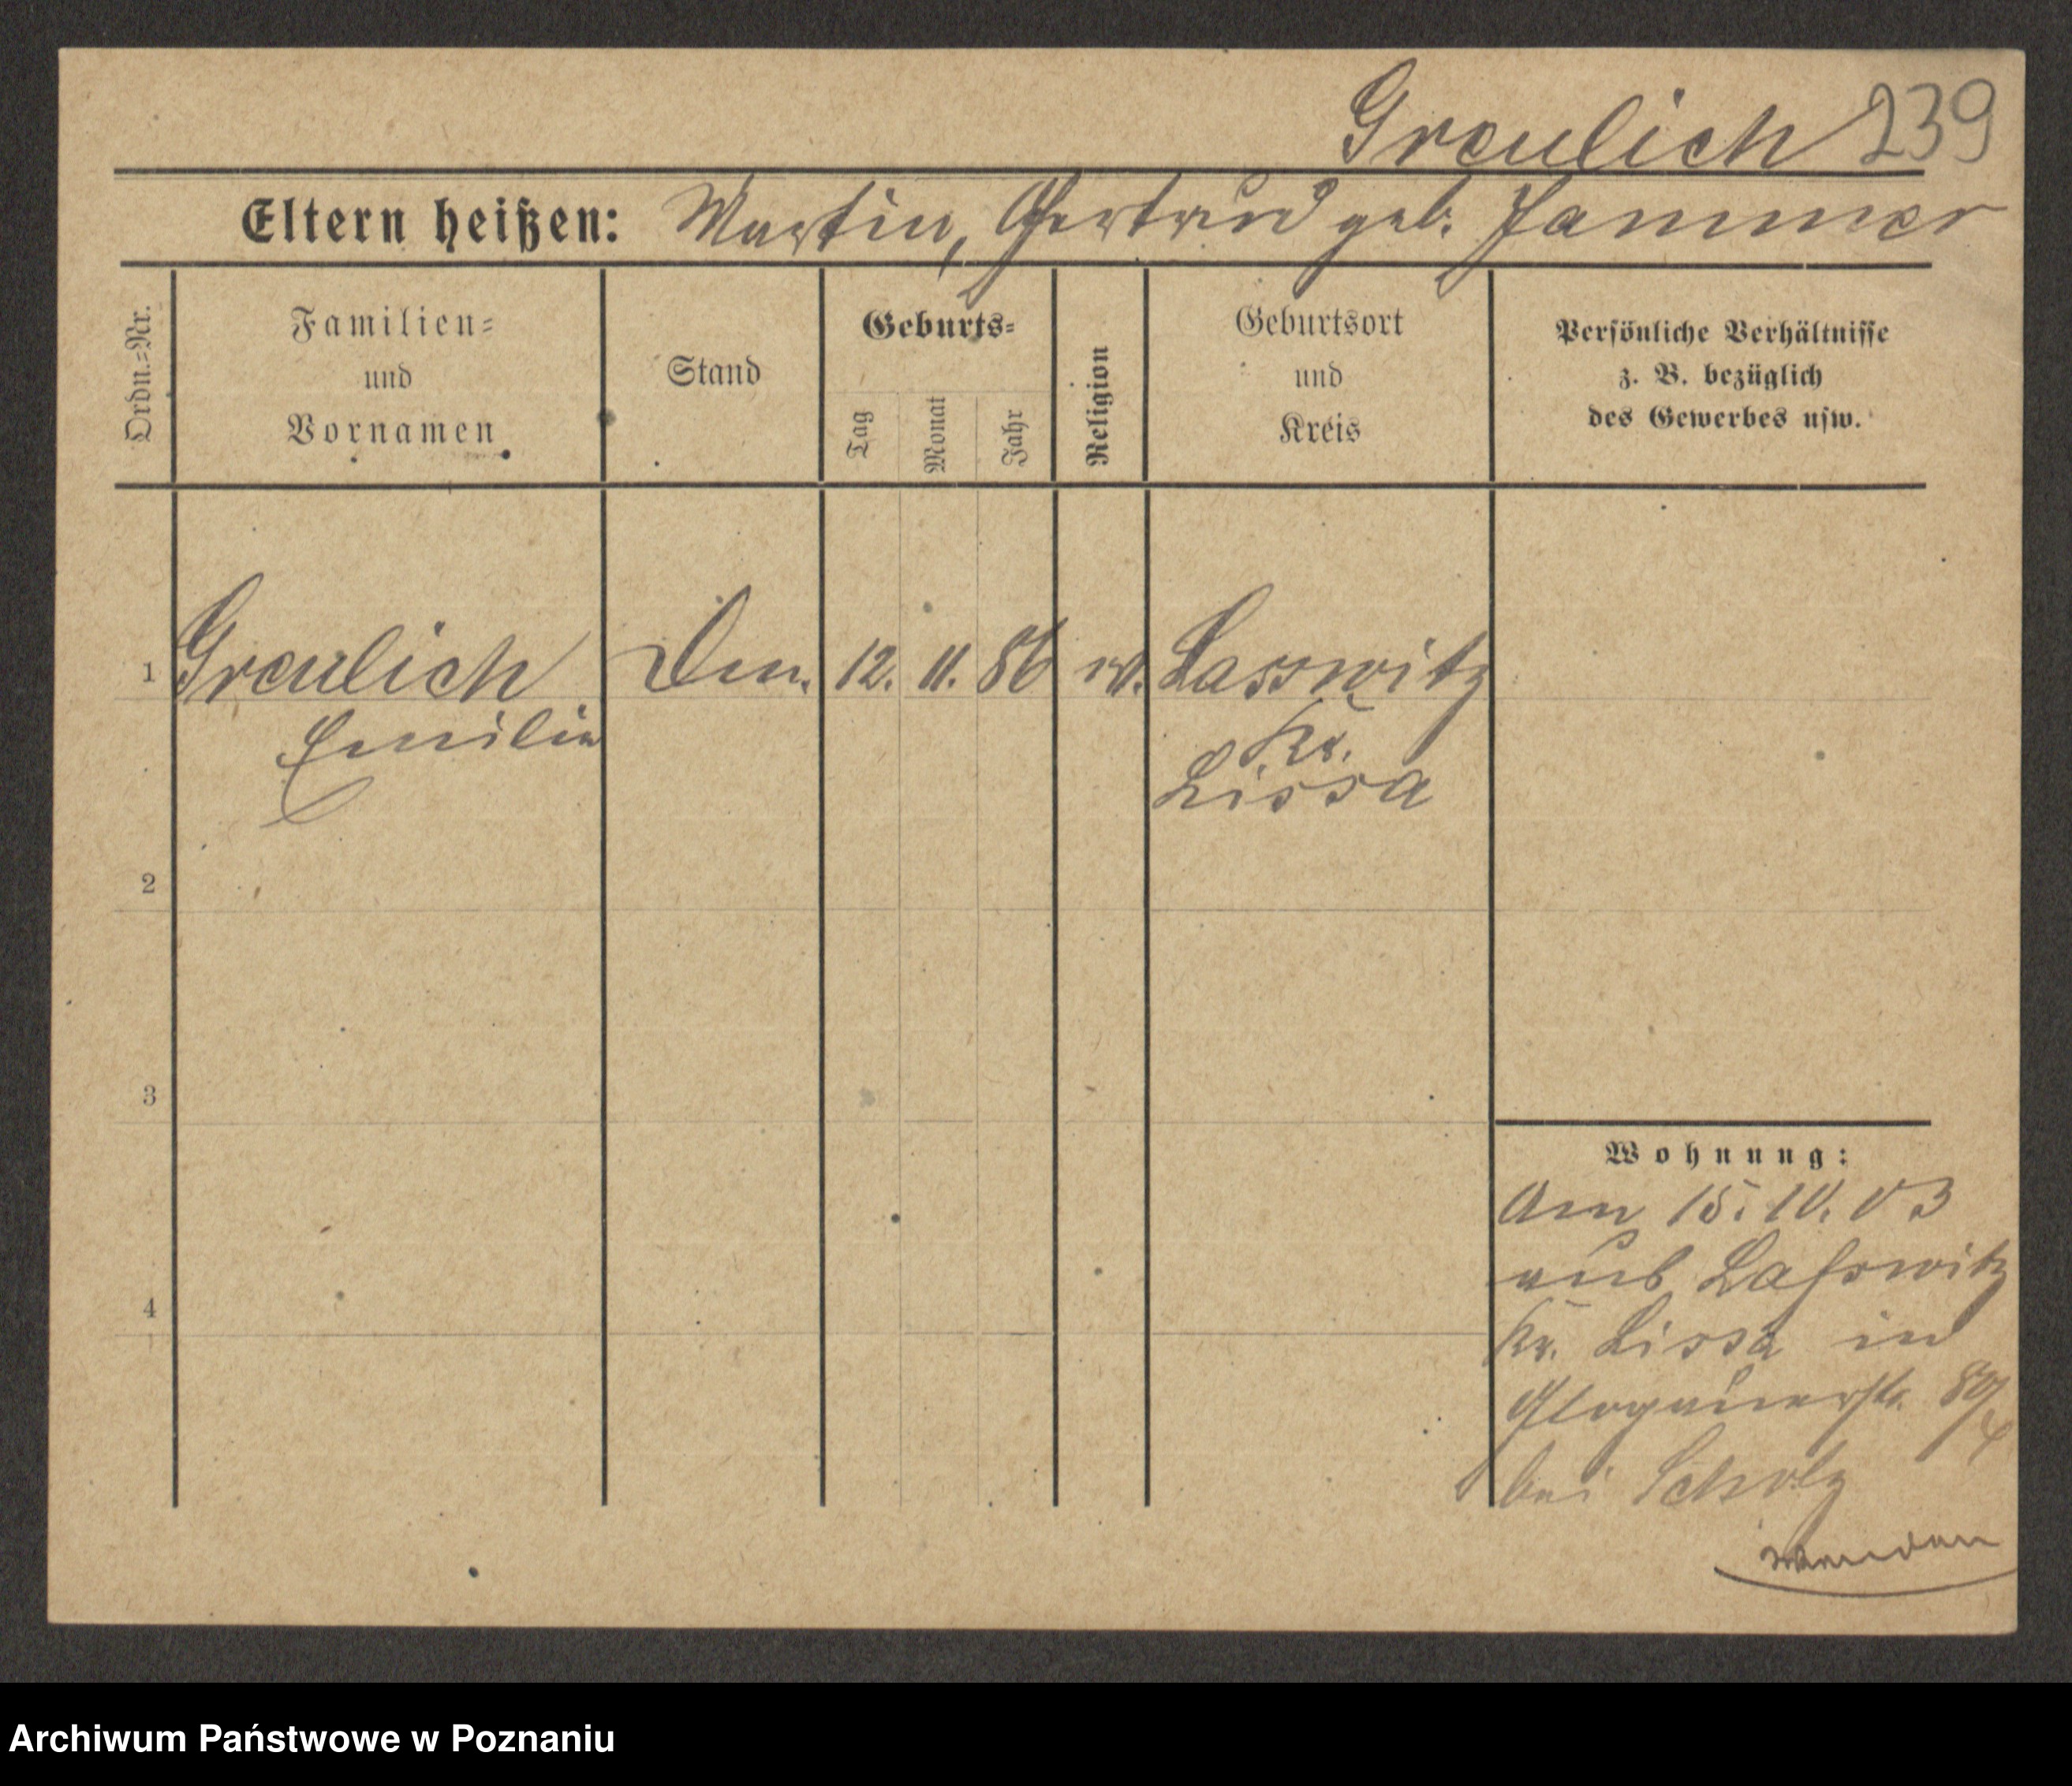 Greulich 239
Eltern heißen: Martin, Gertrud geb. Jammer
Ordn.=Nr.
Familien=
und
Vornamen
Stand
Geburts=
Tag
Monat
Jahr
Religion
Geburtsort
und
Kreis
Persönliche Verhältnisse
z. B. bezüglich
des Gewerbes usw.
1 Greulich 12. 11. 86 Lasswitz
Emilie Kr.
Lissa
2
3
4
Wohnung:
Am 15. 10. 03
aus Lasswitz
Kr. Lissa in
Glogauerstr.
bei Scholz
wenden
Archiwum Państwowe w Poznaniu